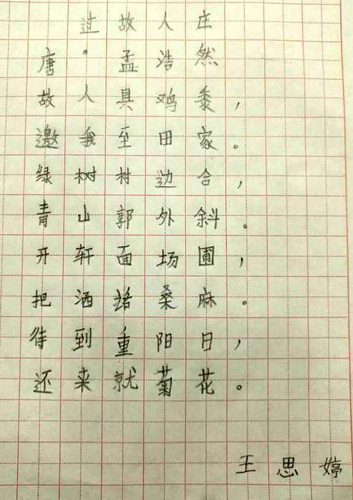 过故人庄
唐·孟浩然
故人具鸡黍，
邀我至田家。
绿树村边合，
青山郭外斜。
开轩面场圃，
把酒话桑麻。
待到重阳日，
还来就菊花。
王思婷